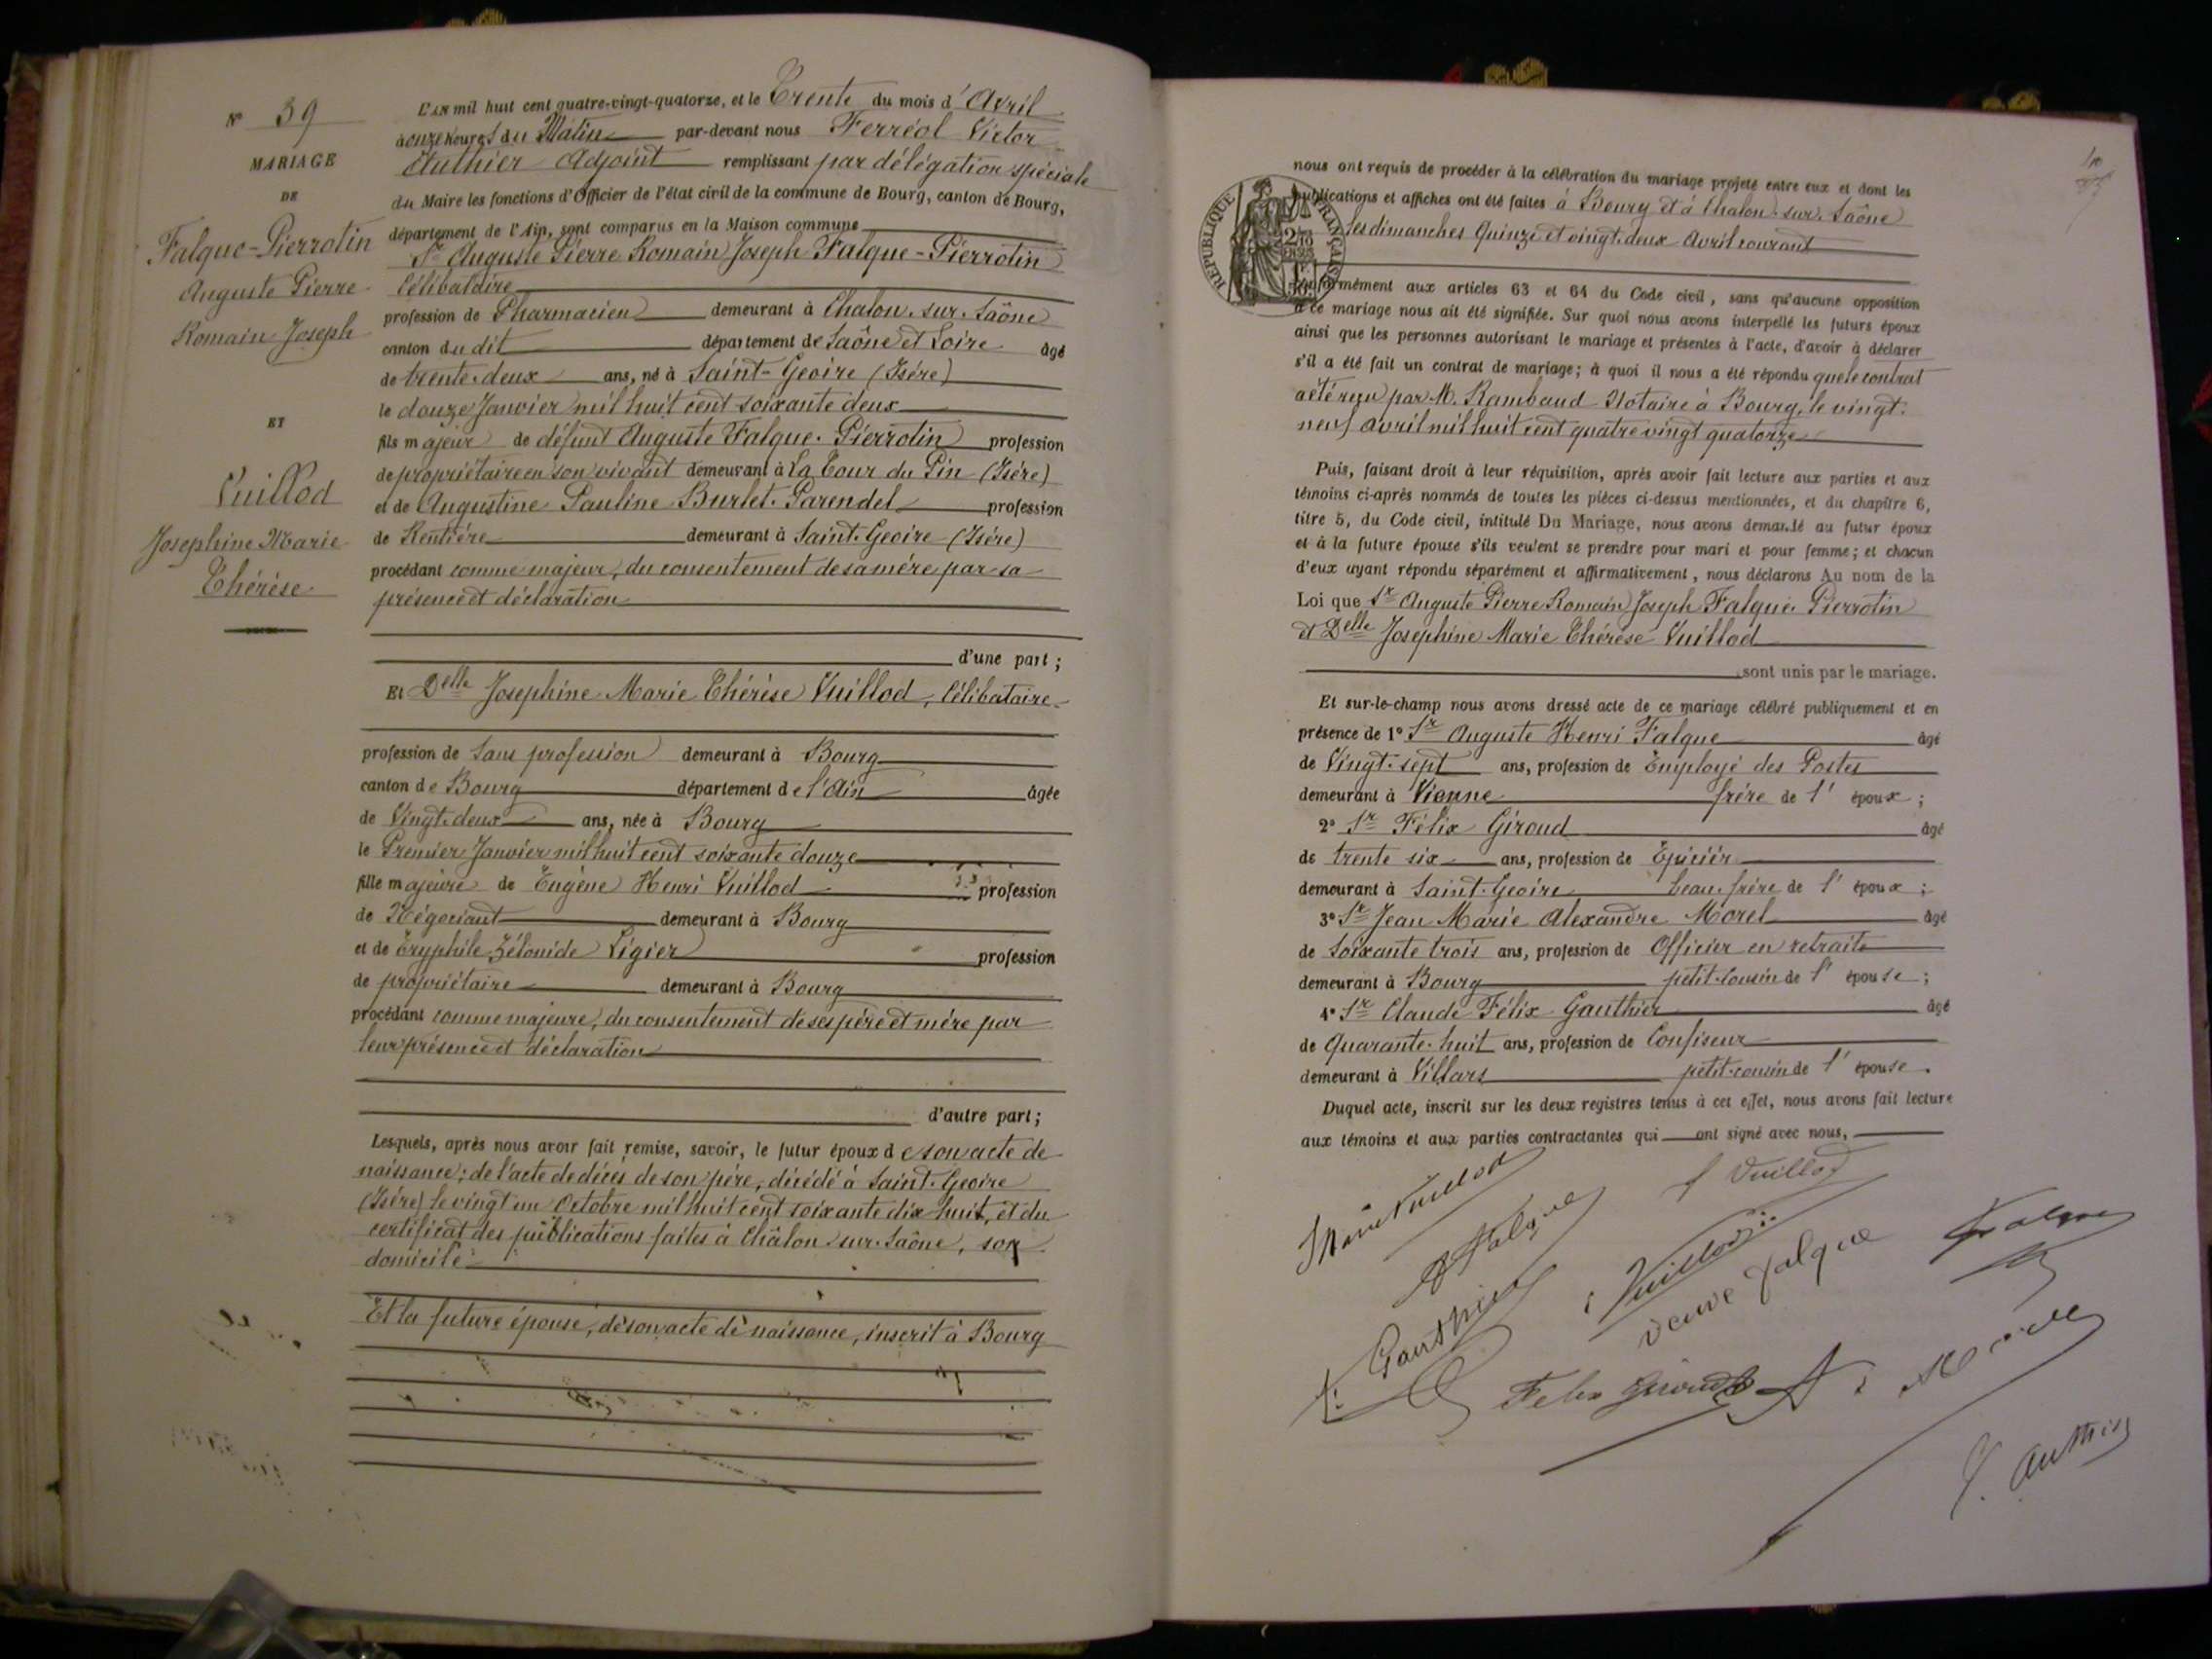 N° 39
MARIAGE
DE
Falque-Pierrotin
Auguste Pierre
Romain Joseph
ET
Vuillod
Josephine Marie
Thérèse
L'an mil huit cent quatre-vingt-quatorze, et le Trente du mois d'Avril
à onze heures du Matin par-devant nous Ferréol Victor
Authier Adjoint remplissant par délégation spéciale
du Maire les fonctions d'Officier de l'état civil de la commune de Bourg, canton de Bourg,
département de l'Ain, sont comparus en la Maison commune
Sr Auguste Pierre Romain Joseph Falque-Pierrotin
Célibataire
profession de Pharmacien demeurant à Chalon-sur-Saône
canton du dit département de Saône et Loire âgé
de trente-deux ans, né à Saint-Geoire (Isére)
le douze Janvier mil huit cent soixante deux
fils majeur de défunt Auguste Falque-Pierrotin profession
de propriétaire en son vivant demeurant à La Tour du Pin (Isére)
et de Augustine Pauline Burlet-Parendel profession
de Rentière demeurant à Saint-Geoire (Isére)
procédant comme majeur, du consentement de sa mére par sa
présence et déclaration
d'une part ;
Et Delle Josephine Marie Thérèse Vuillod, Célibataire
profession de Sans profession demeurant à Bourg
canton de Bourg département de l'Ain âgée
de Vingt-deux ans, née à Bourg
le Premier Janvier mil huit cent soixante douze
fille majeure de Eugène Henri Vuillod profession
de Négociant demeurant à Bourg
et de Eryphile Zélonide Ligier profession
de propriétaire demeurant à Bourg
procédant comme majeure, du consentement de ses père et mère par
leur présence et déclaration
d'autre part ;
Lesquels, après nous avoir fait remise, savoir, le futur époux de son acte de
naissance ; de l'acte de décès de son père, décédé à Saint-Geoire
(Isére) le vingt un Octobre mil huit cent soixante dix huit, et du
certificat des publications faites à Châlon-sur-Saône, son
domicile
Et la future épouse, de son acte de naissance, inscrit à Bourg
nous ont requis de procéder à la célébration du mariage projeté entre eux et dont les
publications et affiches ont été faites à Bourg et à Chalon-sur-Saône
REPUBLIQUE FRANÇAISE
les dimanches Quinze et vingt-deux Avril courant
Conformément aux articles 63 et 64 du Code civil, sans qu'aucune opposition
à ce mariage nous ait été signifiée. Sur quoi nous avons interpellé les futurs époux
ainsi que les personnes autorisant le mariage et présentes à l'acte, d'avoir à déclarer
s'il a été fait un contrat de mariage ; à quoi il nous a été répondu que le contrat
a été reçu par M. Rambaud Notaire à Bourg, le vingt-
neuf avril mil huit cent quatre vingt quatorze
Puis, faisant droit à leur réquisition, après avoir fait lecture aux parties et aux
témoins ci-après nommés de toutes les pièces ci-dessus mentionnées, et du chapitre 6,
titre 5, du Code civil, intitulé Du Mariage, nous avons demandé au futur époux
et à la future épouse s'ils veulent se prendre pour mari et pour femme ; et chacun
d'eux ayant répondu séparément et affirmativement, nous déclarons Au nom de la
Loi que Sr Auguste Pierre Romain Joseph Falque-Pierrotin
et Delle Josephine Marie Thérèse Vuillod
sont unis par le mariage.
Et sur-le-champ nous avons dressé acte de ce mariage célébré publiquement et en
présence de 1° Sr Auguste Henri Falque âgé
de Vingt-sept ans, profession de Employé des Postes
demeurant à Vienne frére de l'époux ;
2° Sr Félix Giroud âgé
de trente six ans, profession de Epicier
demeurant à Saint-Geoire beau-frére de l'époux ;
3° Sr Jean Marie Alexandre Morel âgé
de Soixante trois ans, profession de Officier en retraite
demeurant à Bourg petit-cousin de l'épouse ;
4° Sr Claude Félix Gauthier âgé
de Quarante-huit ans, profession de Confiseur
demeurant à Villars petit-cousin de l'épouse.
Duquel acte, inscrit sur les deux registres tenus à cet effet, nous avons fait lecture
aux témoins et aux parties contractantes qui ont signé avec nous,
Vuillod
A Falque
Vuillod
Veuve Falque
Falque
Gauthier
Felix Giroud
V. Authier